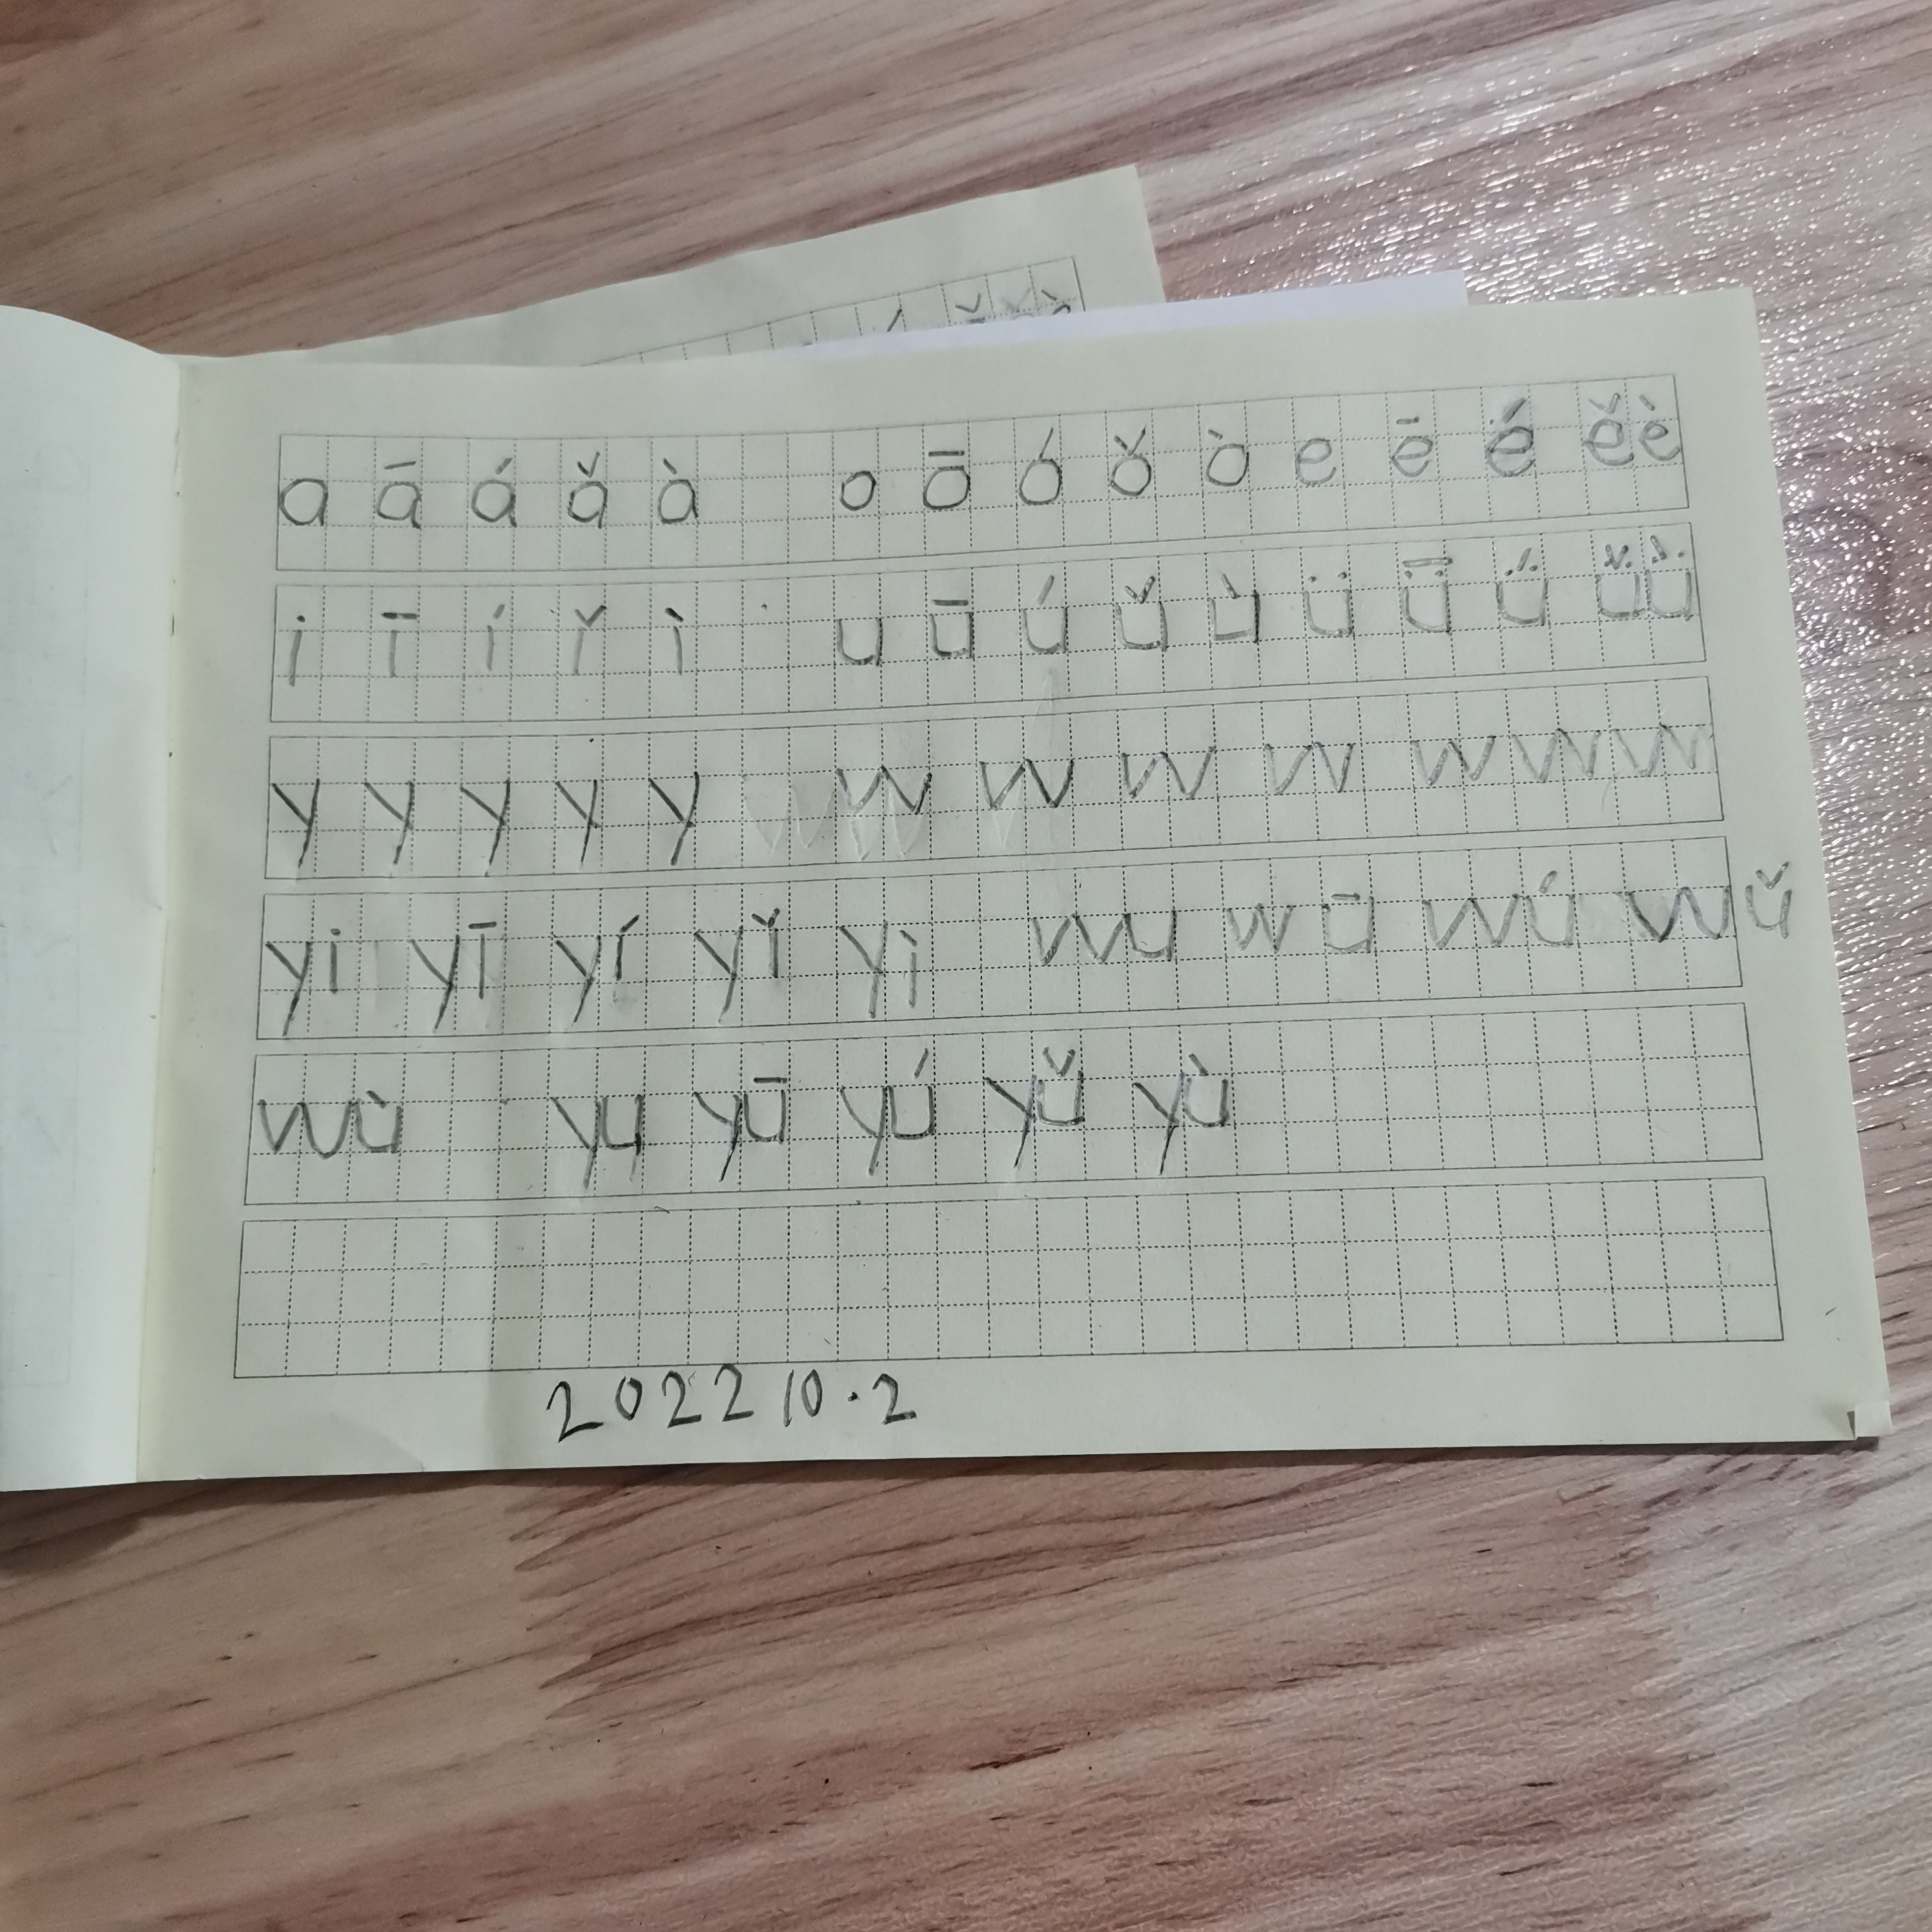 a ā á ǎ à o ō ó ǒ ò e ē é ě è
i ī í ǐ ì u ū ú ǔ ù ü ǖ ǘ ǚ ǜ
y y y y y w w w w w w w
yi yī yí yǐ yì wu wū wú wǔ
wù yu yū yú yǔ yù
2022 10.2